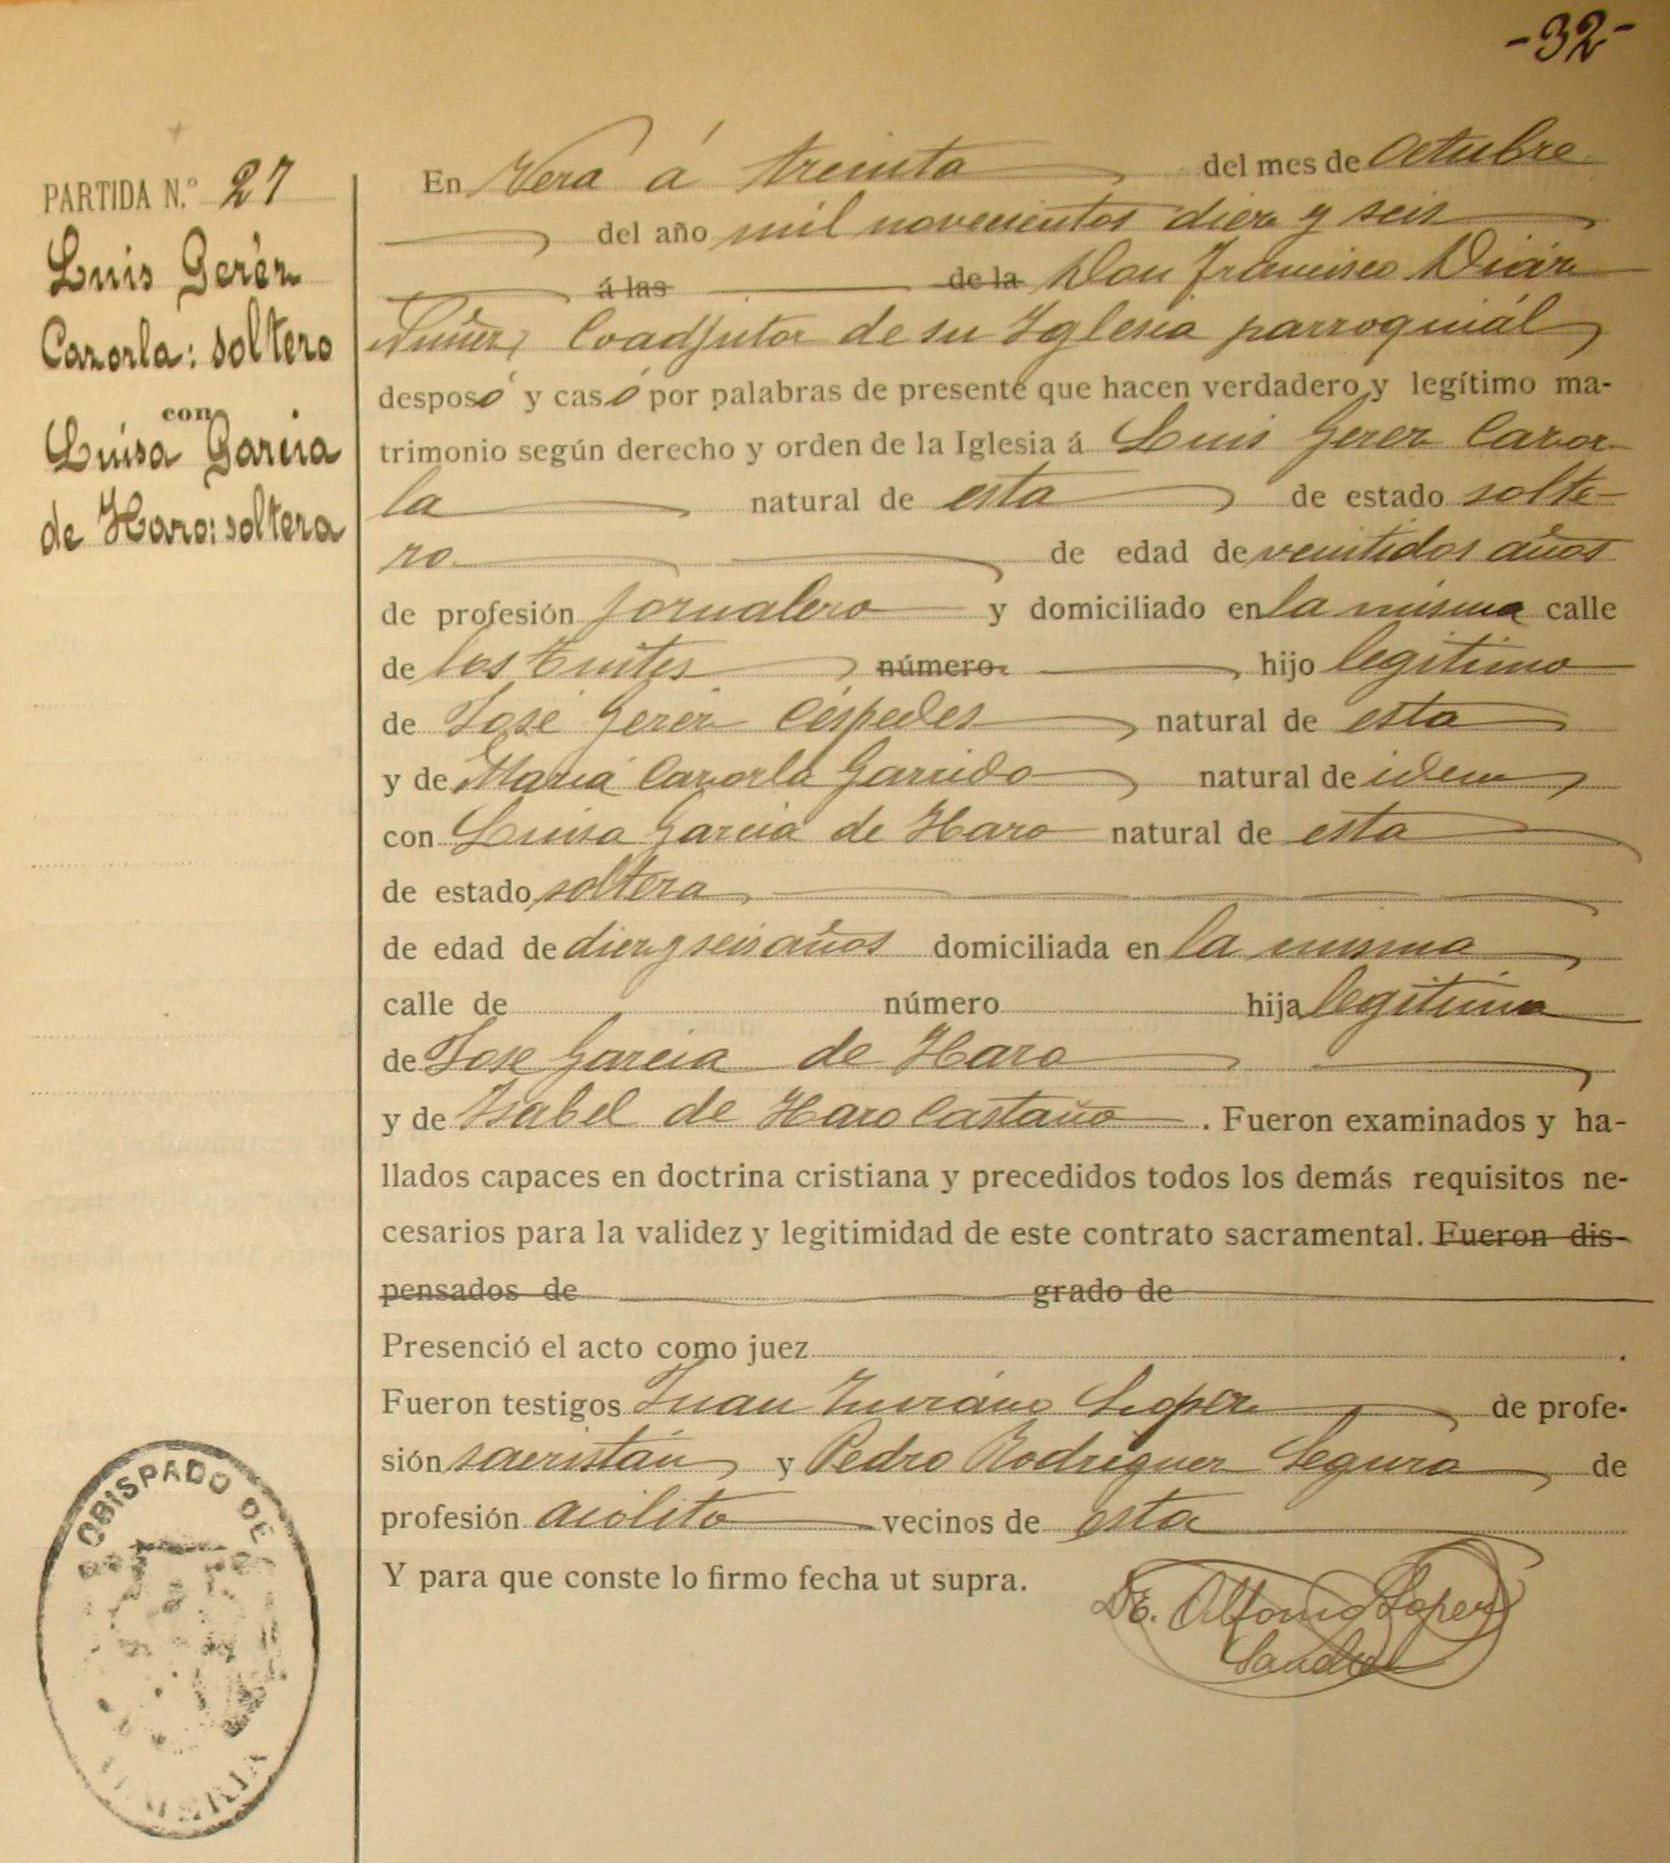 -32-
PARTIDA N.º 27
Luis Gerez
Cazorla: soltero
con
Luisa Garcia
de Haro: soltera
En Vera á treinta del mes de Octubre
del año mil novecientos diez y seis
á las de la Don Francisco Diaz
Nuñez, Coadjutor de su Iglesia parroquiál
desposó y casó por palabras de presente que hacen verdadero y legítimo ma-
trimonio según derecho y orden de la Iglesia á Luis Gerez Cazor-
la natural de esta de estado solte-
ro de edad de veintidos años
de profesión jornalero y domiciliado en la misma calle
de los número hijo legítimo
de José Gerez Céspedes natural de esta
y de María Cazorla Garrido natural de idem
con Luisa Garcia de Haro natural de esta
de estado soltera
de edad de diez y seis años domiciliada en la misma
calle de número hija legítima
de Jose Garcia de Haro
y de Isabel de Haro Castaño. Fueron examinados y ha-
llados capaces en doctrina cristiana y precedidos todos los demás requisitos ne-
cesarios para la validez y legitimidad de este contrato sacramental. Fueron dis-
pensados de grado de
Presenció el acto como juez .
Fueron testigos Juan Lopez de profe-
sión sacristán y Pedro Rodriguez Segura de
profesión acólito vecinos de esta
Y para que conste lo firmo fecha ut supra.
Dr. Alfonso Lopez
OBISPADO DE
ALMERIA